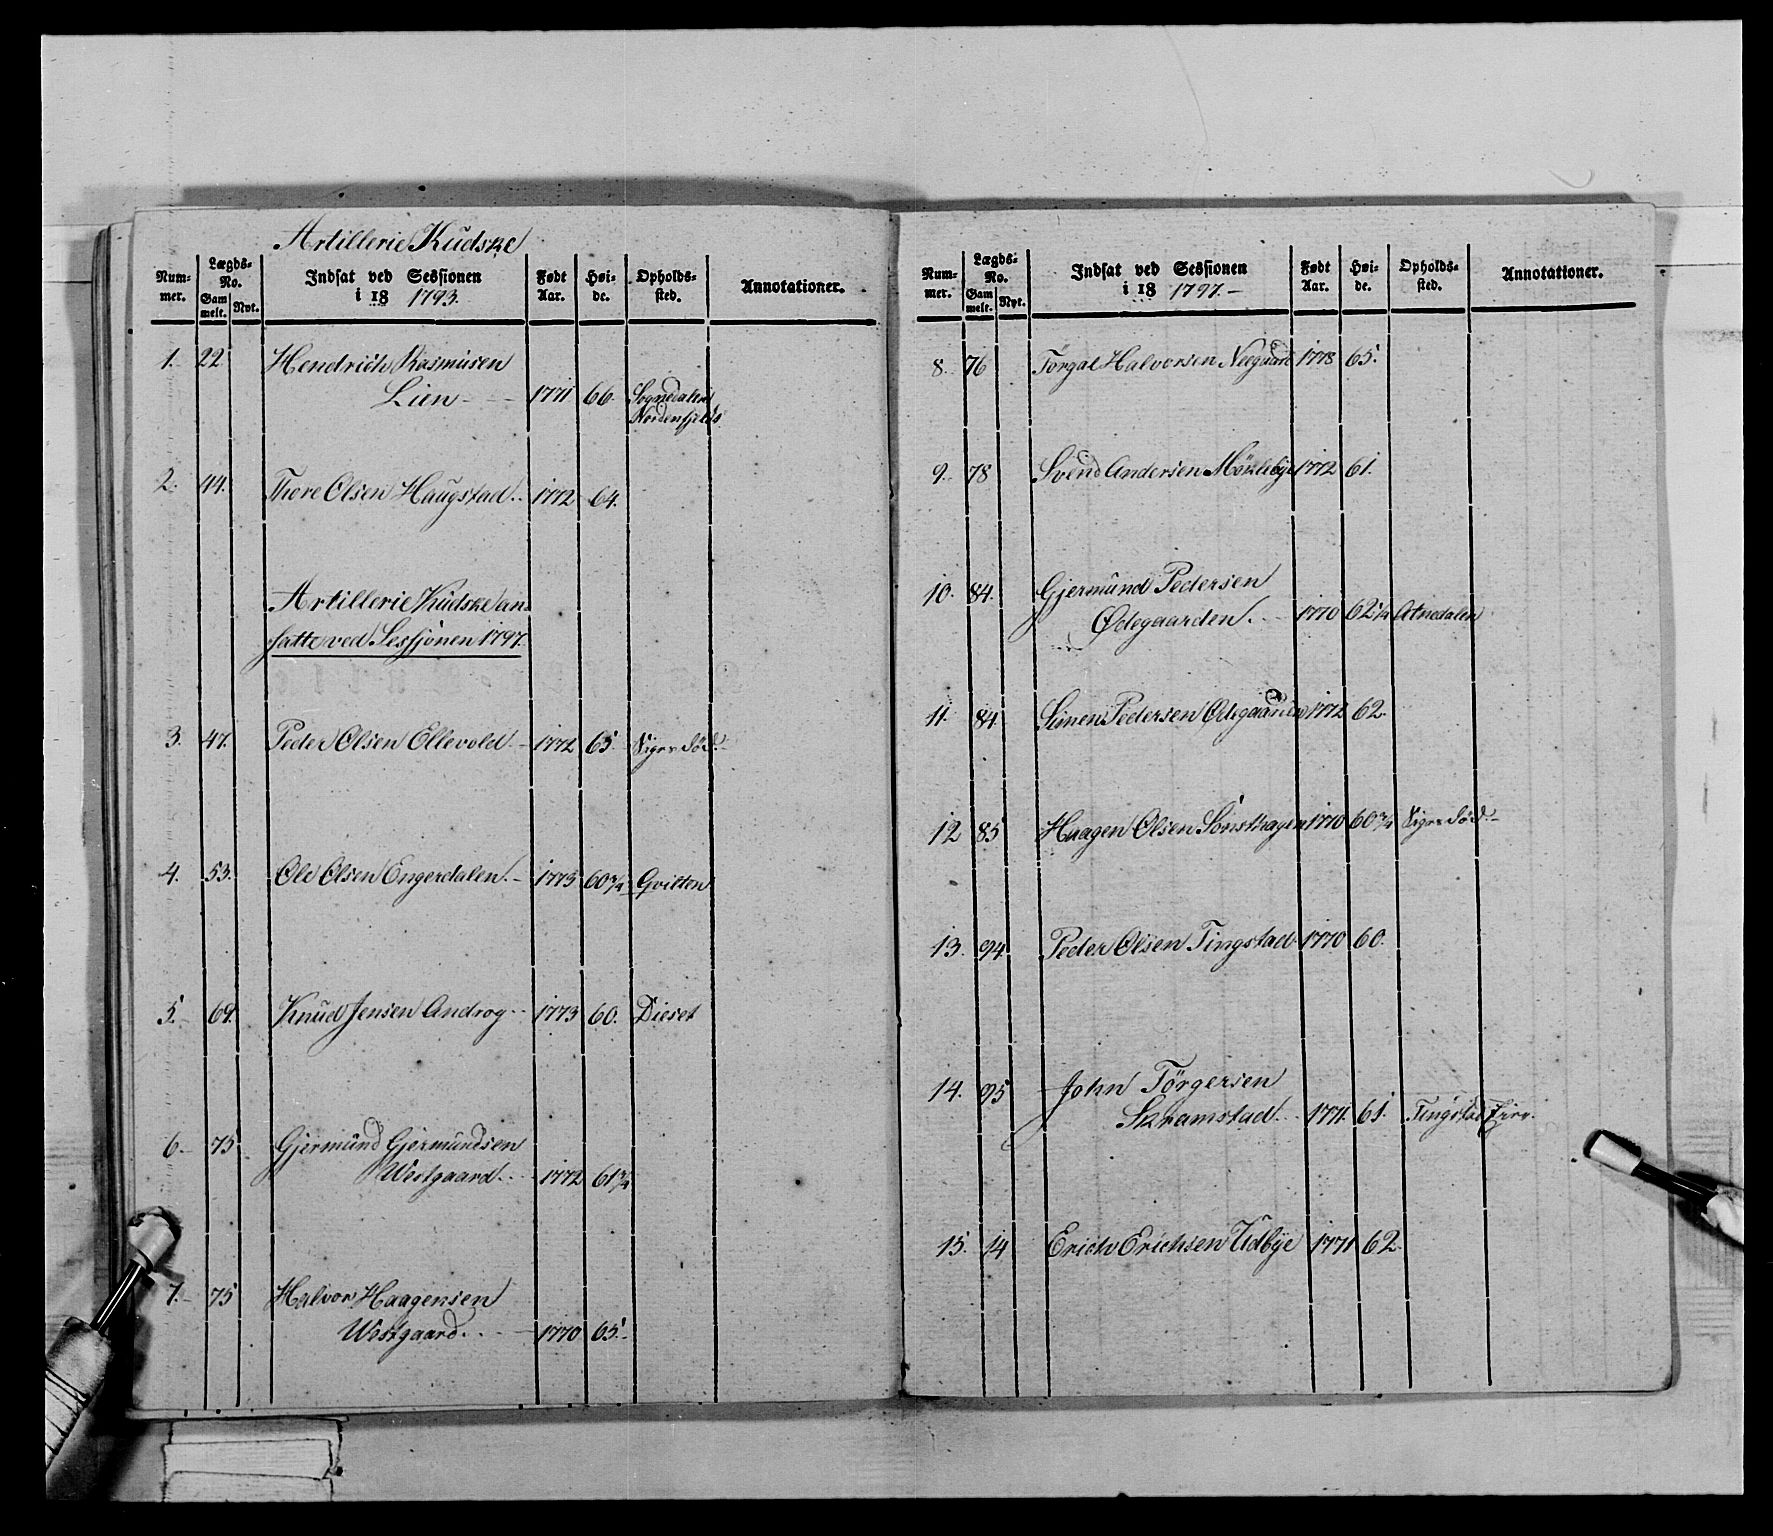 Artillerie Kudske
Num-
mer.
Lægds-
No.
Gam
melt.
Nyt.
Indsat ved Sessionen
i 18 1793.
Født
Aar.
Høi-
de.
Opholds-
sted.
Annotationer.
1. 22 Hendrich Rasmusen
Lien 1771 66. Sognedalen
Nordenfjelds
2. 44. Thore Olsen Haugstad 1772 64.
Artillerie Kudske an-
satte ved Sessionen 1797.
3. 47. Peder Olsen Ellevold 1772 65 Siges død
4. 53. Ole Olsen Engerdalen 1773 60 3/4 Qvilten
5. 69. Knud Jensen Androg 1773 60. Dieset
6. 75 Gjermund Gjermundsen
Westgaard 1772 61 3/4
7. 75 Halvor Haagensen
Westgaard 1770 65.
Num-
mer.
Lægds-
No.
Gam
melt.
Nyt.
Indsat ved Sessionen
i 18 1797.
Født
Aar.
Høi-
de.
Opholds-
sted.
Annotationer.
8. 76 Halvorsen Neegaard 1778 65.
9. 78 Svend Andersen Möklebye 1772 61.
10. 84. Gjermund Pedersen
Ødegaarden 1770 62 1/4 Atnedalen
11. 84 Simen Pedersen Ødegaarden 1772 62.
12 85 Haagen Olsen Sönsthagen 1770 60 3/4 Siges død
13. 94 Peder Olsen Tingstad 1770 60.
14. 95 John Törgersen
Skramstad 1771 61. Tingstad
15. 14 Erich Erichsen Udbye 1771 62.